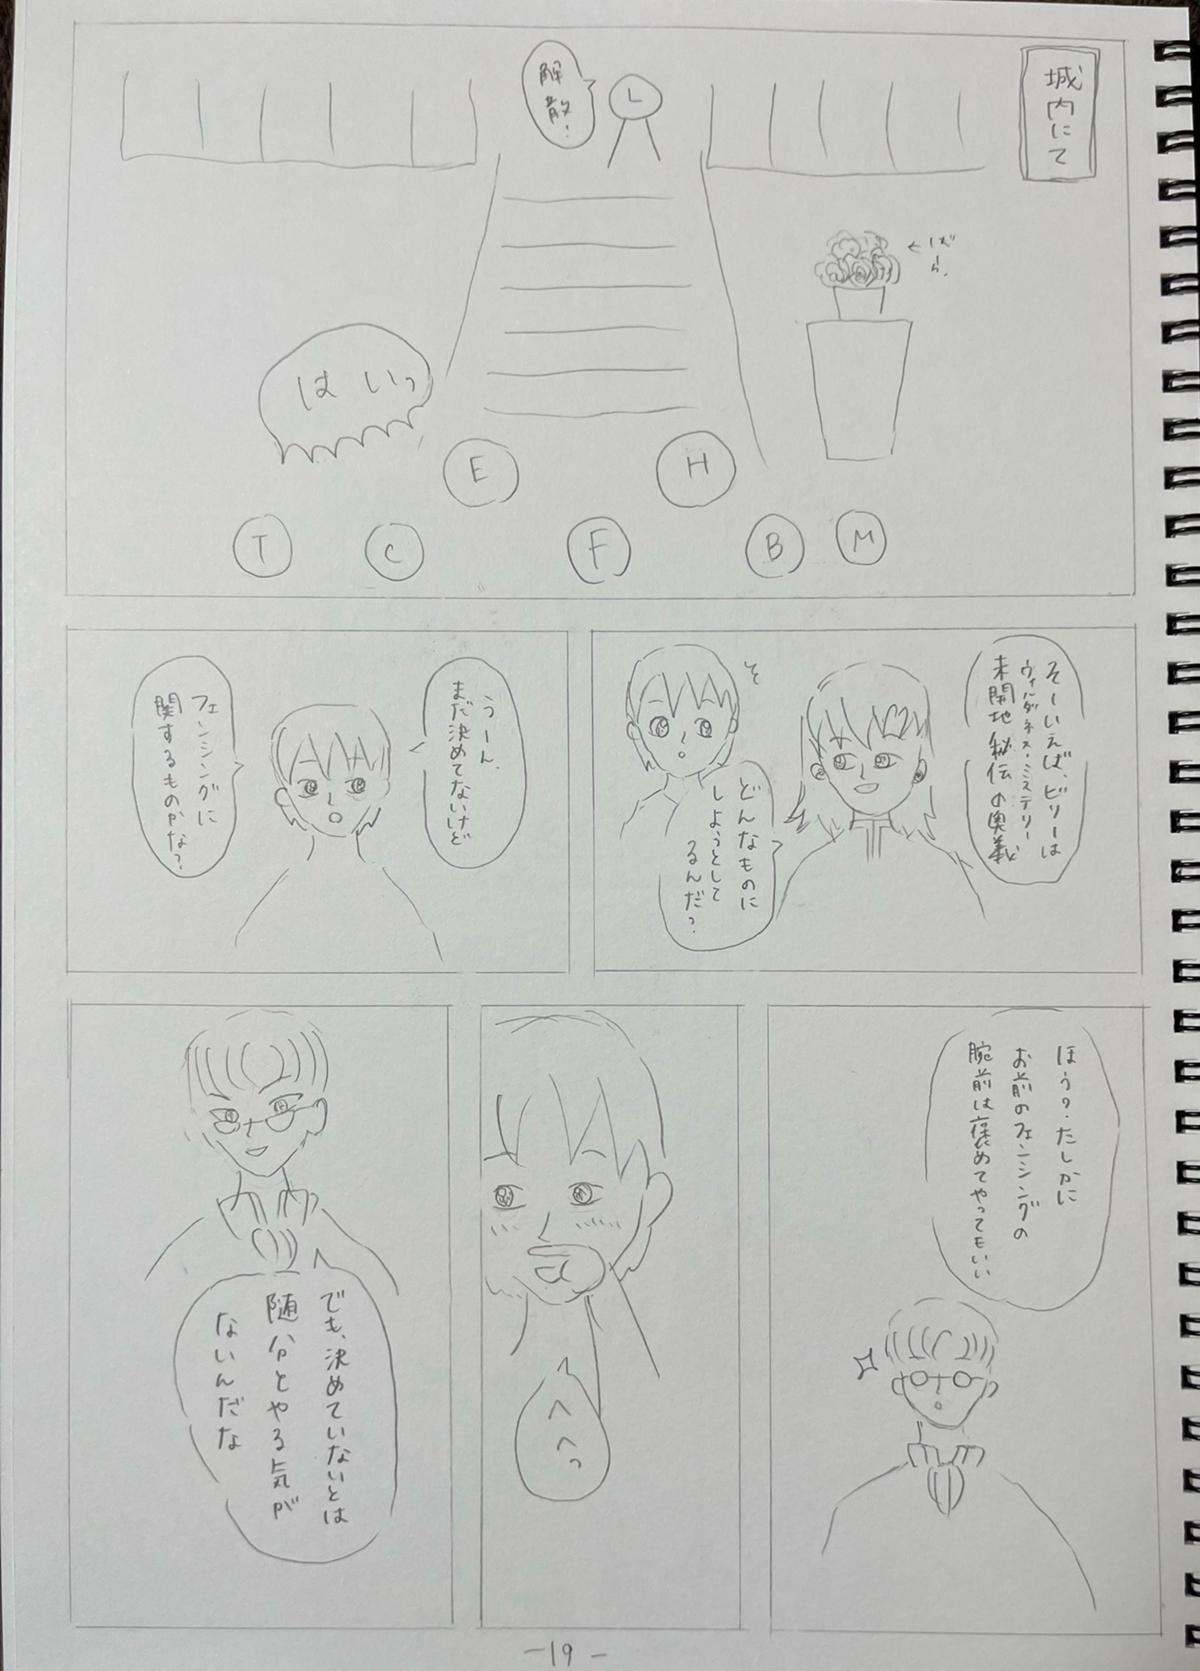 城内にて
解散!
L
←ばーら。
はいっ
E
H
T
C
F
B
M
そーいえば、ビリーは
ウィルダネス・ミステリー
未開地秘伝の奥義
そ
どんなものに
しようとして
るんだ?
うーん、
まだ決めてないけど
フェンシングに
関するものかな?
ほう?たしかに
お前のフェンシングの
腕前は褒めてやってもいい
へへっ
でも、決めていないとは
随分とやる気が
ないんだな
-19-